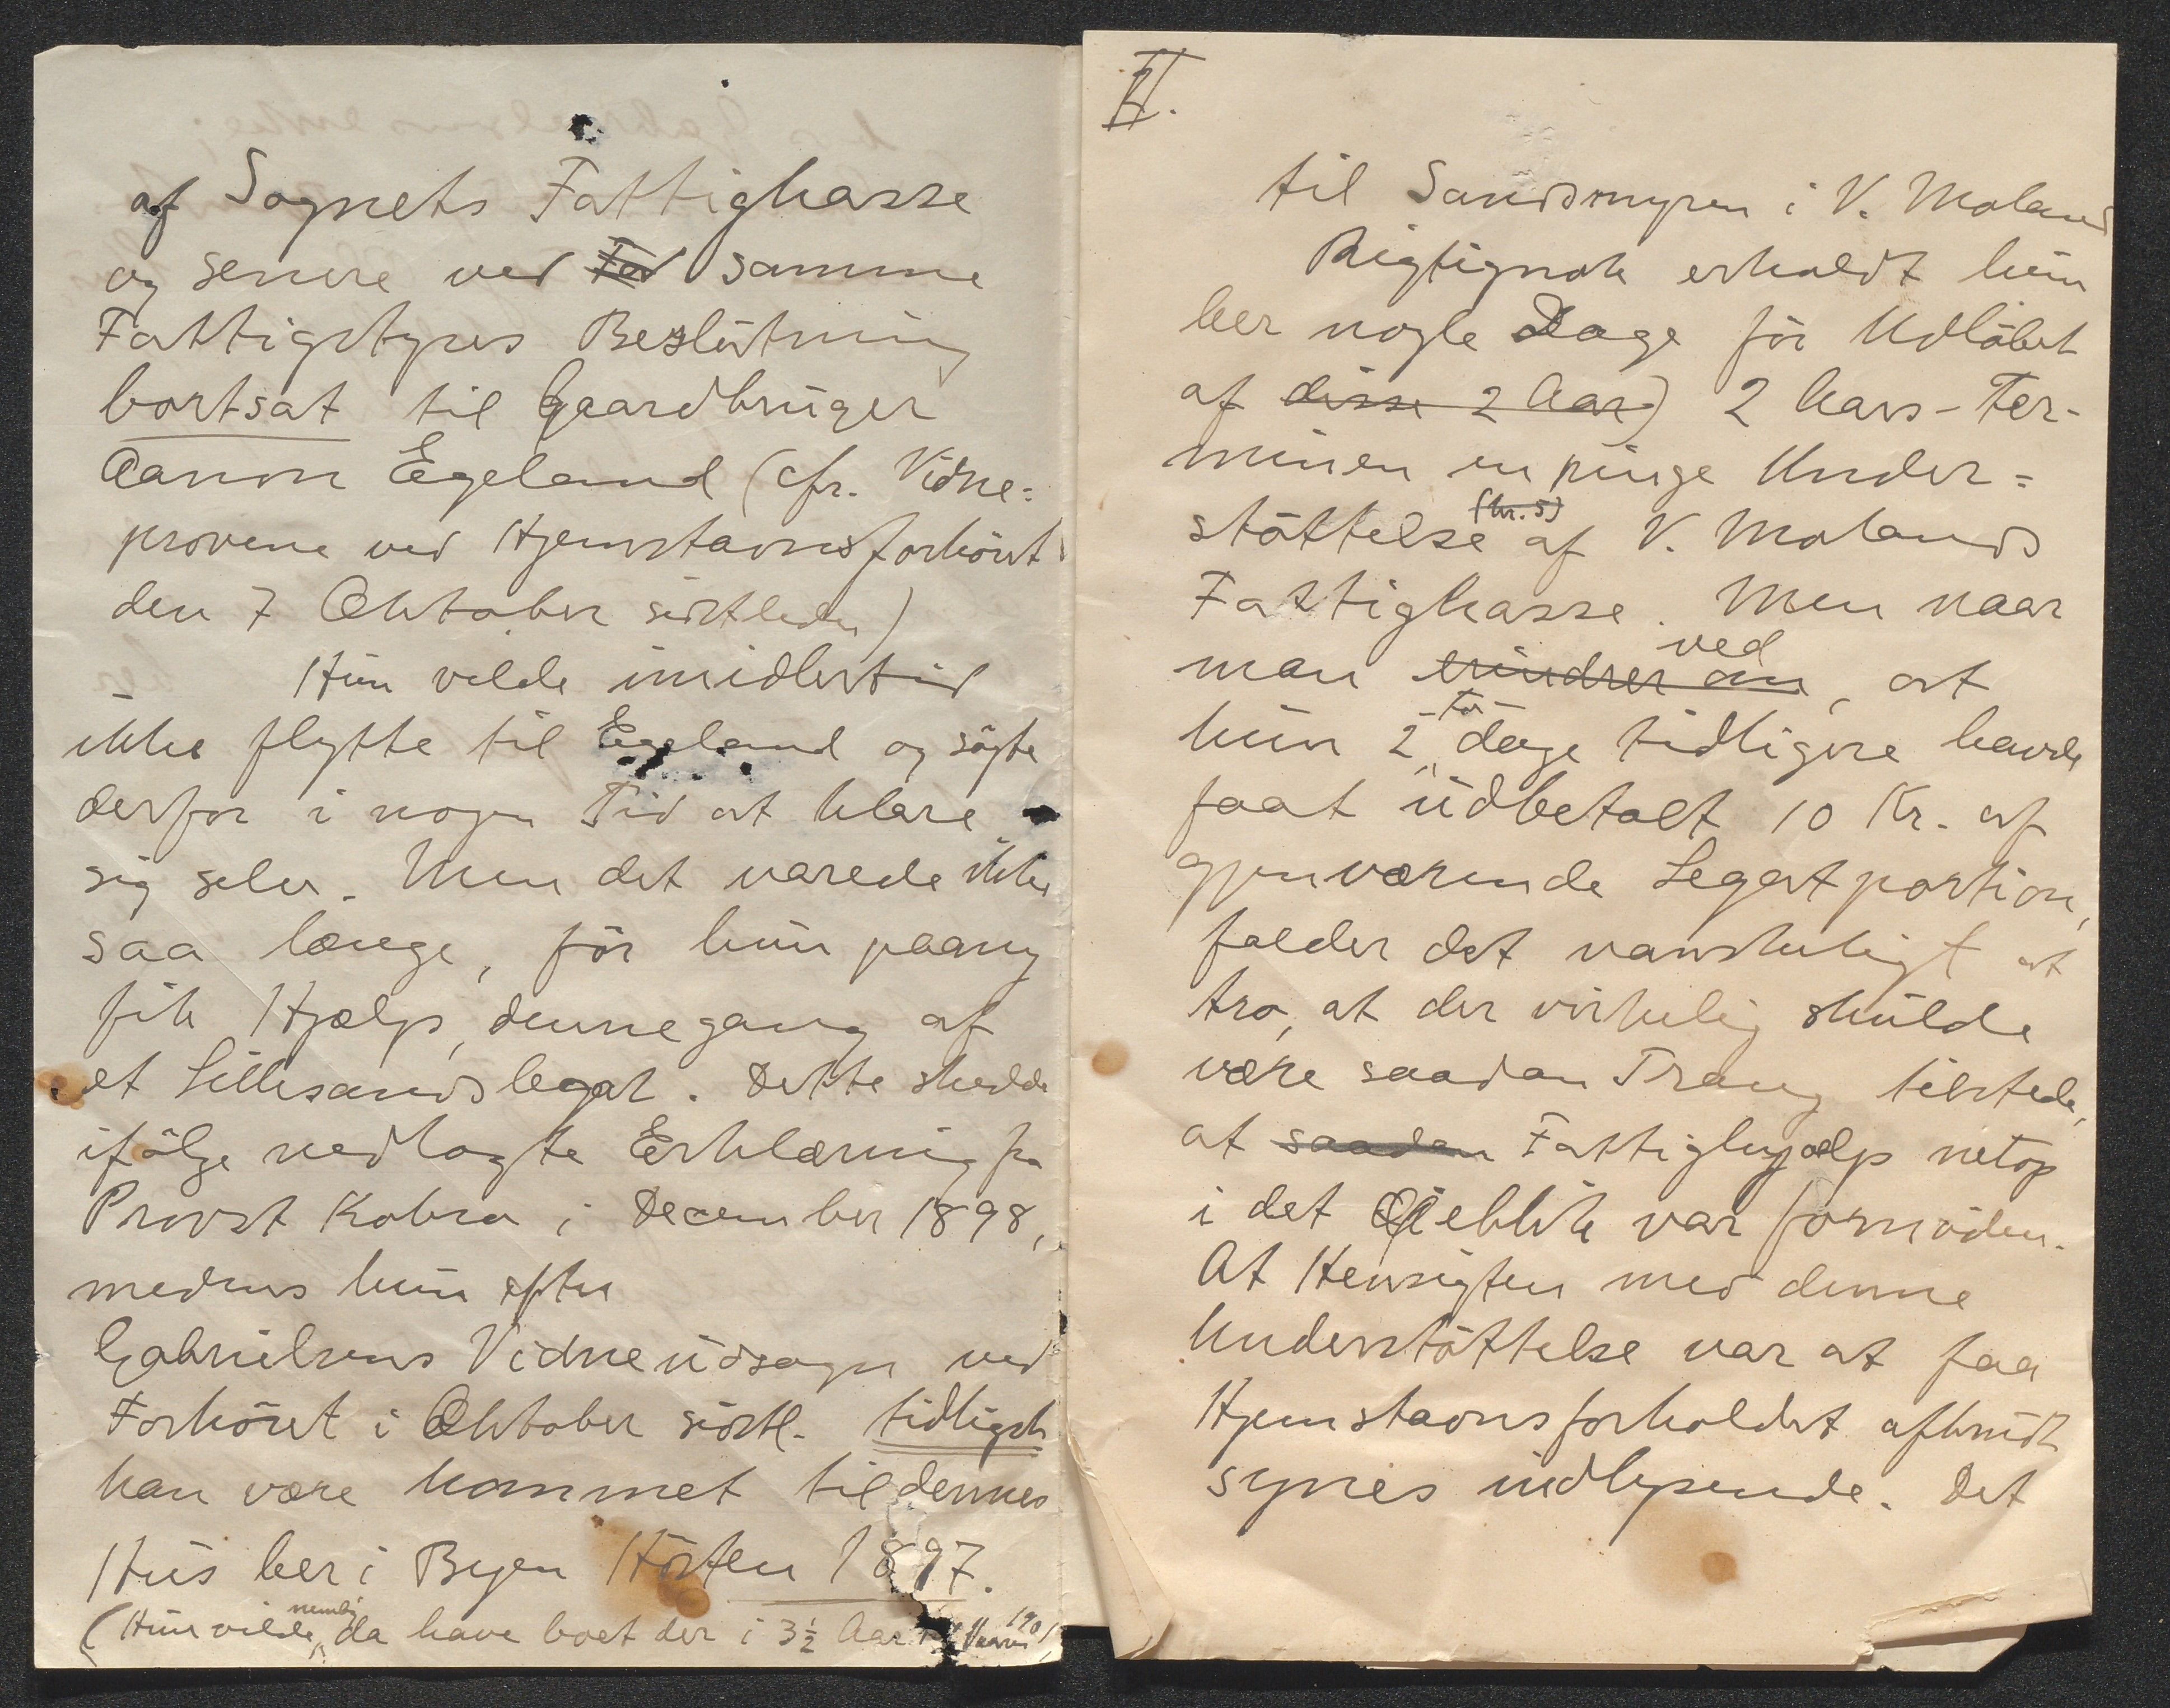 af Sognets Fattigkasse
og senere ved samme
Fattigstyres Beslutning
bortsat til Gaardbruger
Aanon Egeland (cfr. Vidne=
provene ved Hjemstavnsforhöret
den 7 Oktober sidstleden)
Hun vilde imidlertid
ikke flytte til Egeland og sögte
derfor i nogen Tid at klare
sig selv. Men det varede ikke
saa længe, för hun paany
fik Hjælp, dennegang af
et Lillesandslegat. Dette skedde
ifölge vedlagte Erklæring fra
Provst Kobro i December 1898,
medens hun efter
Gabrielsens Vidneudsagn ved
Forhöret i Oktober sidstl. tidligst
kan være kommet til dennes
Hus her i Byen Hösten 1897.
(Hun vilde nemlig da have boet der i 3½ Aar Vaaren 1901
II.
til Sandsmyren i V. Moland
Rigtignok erholdt hun
her nogle Dage för Udlöbet
af disse 2 Aar) 2 Aars-Ter-
minen en ringe Under=
stöttelse (kr. 5) af V. Molands
Fattigkasse. Men naar
man erindrer om ved, at
hun 2 dage tidligere havde
faat udbetalt 10 Kr. af
gjenværende Legatportion,
falder det vanskeligt at
tro, at der virkelig skulde
være saadan Trang tilstede,
at saadan Fattighjælp netop
i det Öieblik var fornöden.
At Hensigten med denne
Understöttelse var at faa
Hjemstavnsforholdet afbrudt
synes indlysende. Det